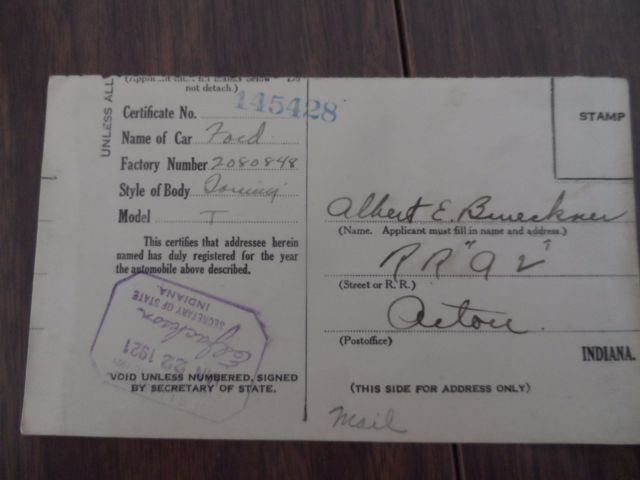 UNLESS ALL
not detach.)
Certificate No. 145428
Name of Car Ford
Factory Number 2080848
Style of Body Touring
Model T
This certifies that addressee herein
named has duly registered for the year
the automobile above described.
SECRETARY OF STATE
INDIANA.
Ed Jackson
22 1921
VOID UNLESS NUMBERED, SIGNED
BY SECRETARY OF STATE.
STAMP
Albert E. Brueckner
(Name. Applicant must fill in name and address.)
RR "a 2"
(Street or R. R.)
Acton.
(Postoffice)
INDIANA.
(THIS SIDE FOR ADDRESS ONLY)
Mail